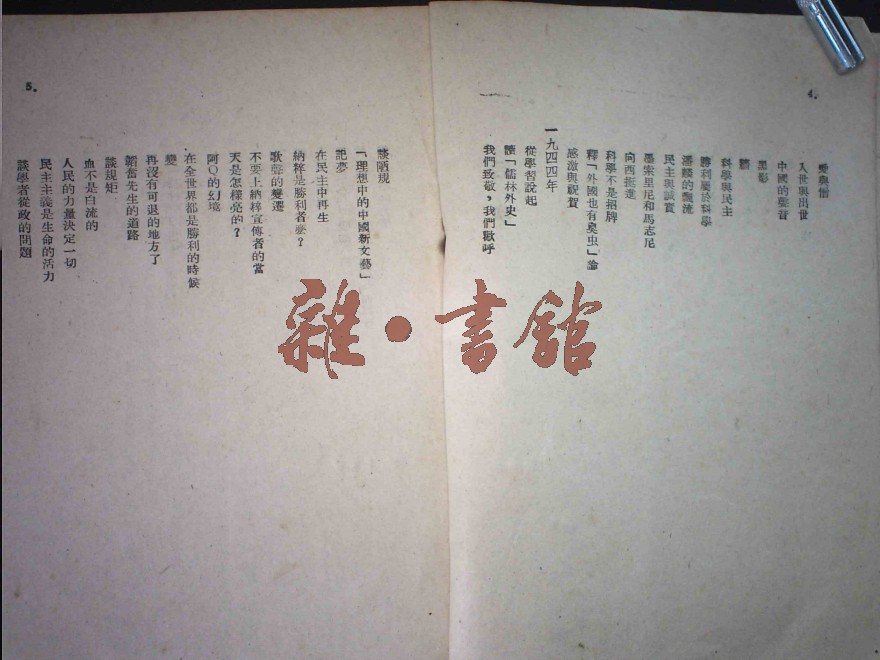 4.
愛與憎
入世與出世
中國的聲音
黑影
科學與民主
勝利屬於科學
潘麟的飄流
民主與誠實
墨索里尼和馬志尼
向西挺進
科學不是招牌
釋「外國也有臭虫」論
感激與祝賀
一九四四年
從學習說起
讀「儒林外史」
我們致敬，我們歡呼
5.
談陋規
「理想中的中國新文藝」
記夢
在民主中再生
納粹是勝利者麼？
歌聲的變遷
不要上納粹宣傳者的當
天是怎樣亮的？
阿Q的幻境
在全世界都是勝利的時候
變
再沒有可退的地方了
韜奮先生的道路
談規矩
血不是白流的
人民的力量決定一切
民主主義是生命的活力
談學者從政的問題
雜·書館